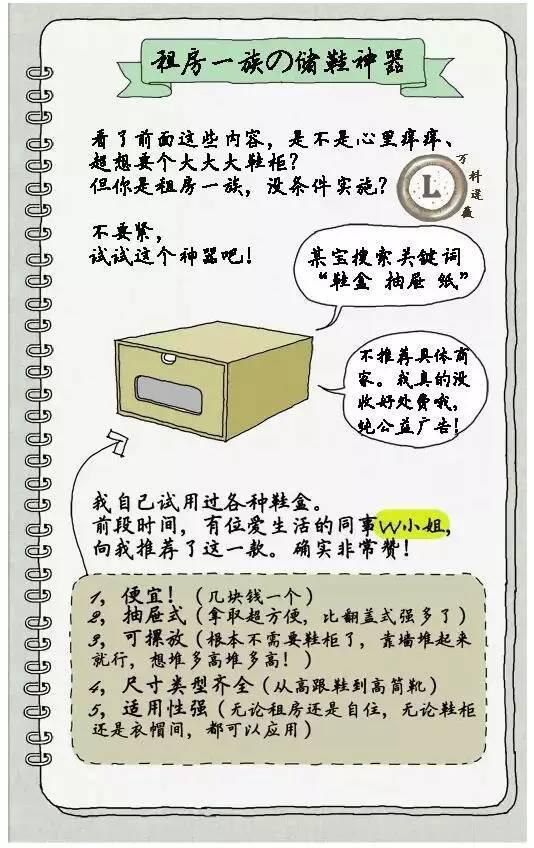 租房一族の储鞋神器
看了前面这些内容，是不是心里痒痒、
超想要个大大大鞋柜？
但你是租房一族，没条件实施？
万科逯薇
L
不要紧，
试试这个神器吧！
某宝搜索关键词
“鞋盒 抽屉 纸”
不推荐具体商
家。我真的没
收好处费哦，
纯公益广告！
我自己试用过各种鞋盒。
前段时间，有位爱生活的同事W小姐，
向我推荐了这一款。确实非常赞！
1，便宜！（几块钱一个）
2，抽屉式（拿取超方便，比翻盖式强多了）
3，可摞放（根本不需要鞋柜了，靠墙堆起来
就行，想堆多高堆多高！）
4，尺寸类型齐全（从高跟鞋到高筒靴）
5，适用性强（无论租房还是自住，无论鞋柜
还是衣帽间，都可以应用）